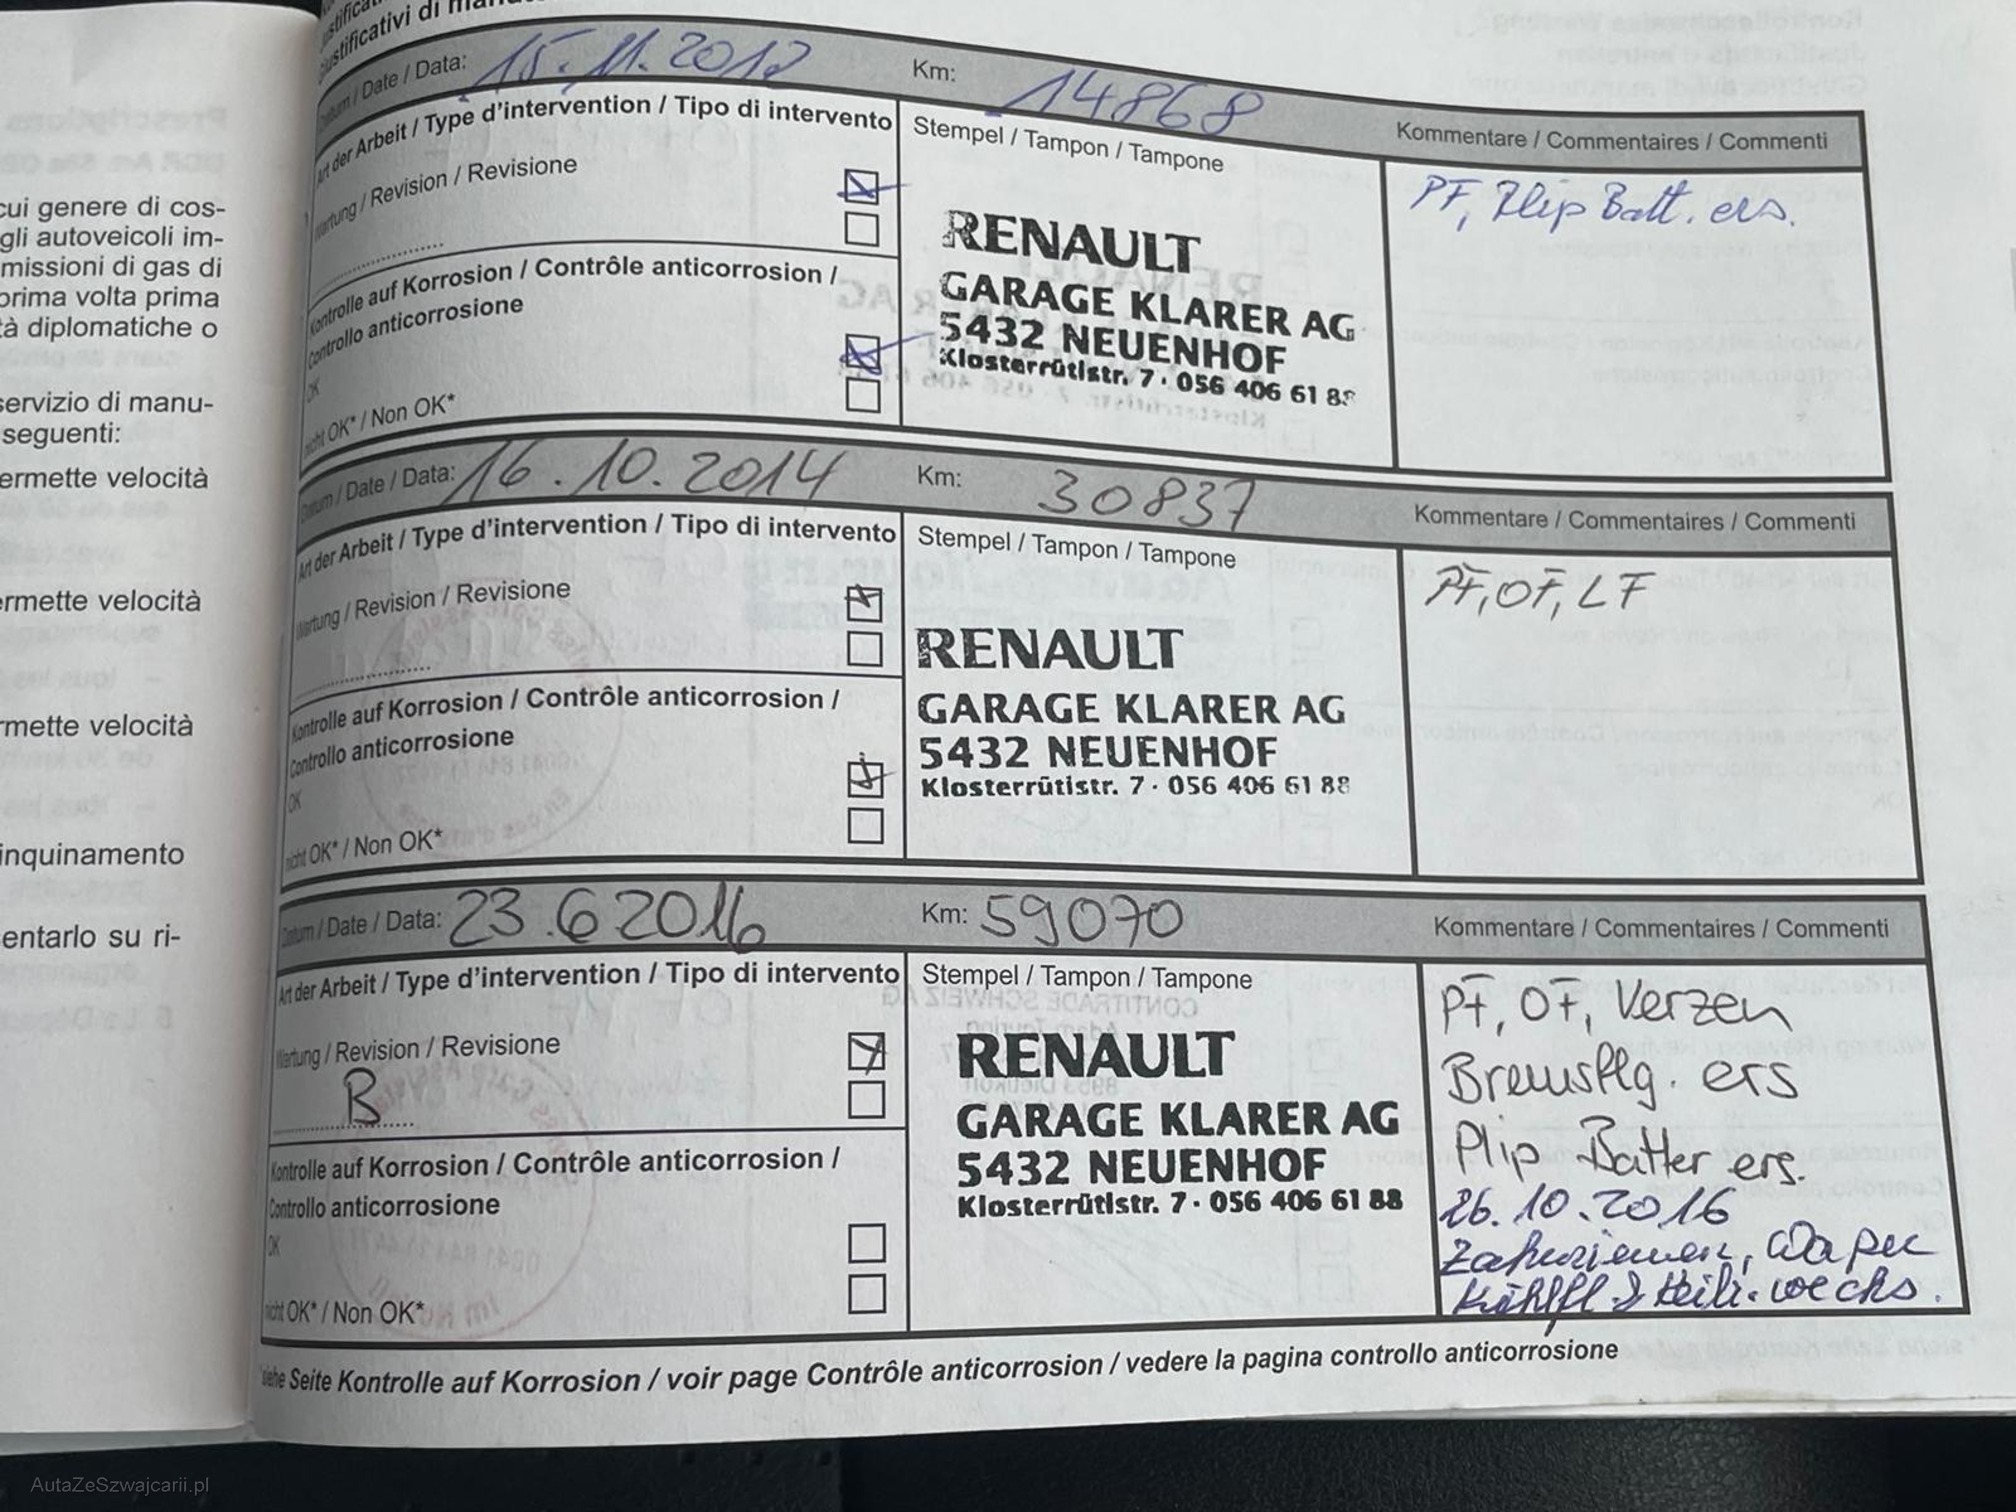 Giustificativi di
Datum / Date / Data: 15.11.2012 Km: 14868
Art der Arbeit / Type d'intervention / Tipo di intervento
Stempel / Tampon / Tampone
Kommentare / Commentaires / Commenti
Wartung / Revision / Revisione
PF, Plip Batt. ers.
RENAULT
GARAGE KLARER AG
5432 NEUENHOF
Klosterrütistr. 7 · 056 406 61 88
Kontrolle auf Korrosion / Contrôle anticorrosion /
Controllo anticorrosione
OK
nicht OK* / Non OK*
Datum / Date / Data: 16.10.2014 Km: 30837
Art der Arbeit / Type d'intervention / Tipo di intervento
Stempel / Tampon / Tampone
Kommentare / Commentaires / Commenti
Wartung / Revision / Revisione
PF, OF, LF
RENAULT
GARAGE KLARER AG
5432 NEUENHOF
Klosterrütistr. 7 · 056 406 61 88
Kontrolle auf Korrosion / Contrôle anticorrosion /
Controllo anticorrosione
OK
nicht OK* / Non OK*
Datum / Date / Data: 23.6.2016 Km: 59070
Art der Arbeit / Type d'intervention / Tipo di intervento
Stempel / Tampon / Tampone
Kommentare / Commentaires / Commenti
Wartung / Revision / Revisione
B
RENAULT
GARAGE KLARER AG
5432 NEUENHOF
Klosterrütistr. 7 · 056 406 61 88
PF, OF, Verzen
Bremsflg. ers
Plip Batter ers.
26.10.2016
Zahnriemen, Wapu
wechs.
Kontrolle auf Korrosion / Contrôle anticorrosion /
Controllo anticorrosione
OK
nicht OK* / Non OK*
*siehe Seite Kontrolle auf Korrosion / voir page Contrôle anticorrosion / vedere la pagina controllo anticorrosione
cui genere di cos-
gli autoveicoli im-
missioni di gas di
prima volta prima
tà diplomatiche o
servizio di manu-
seguenti:
ermette velocità
ermette velocità
rmette velocità
inquinamento
entarlo su ri-
AutaZeSzwajcarii.pl